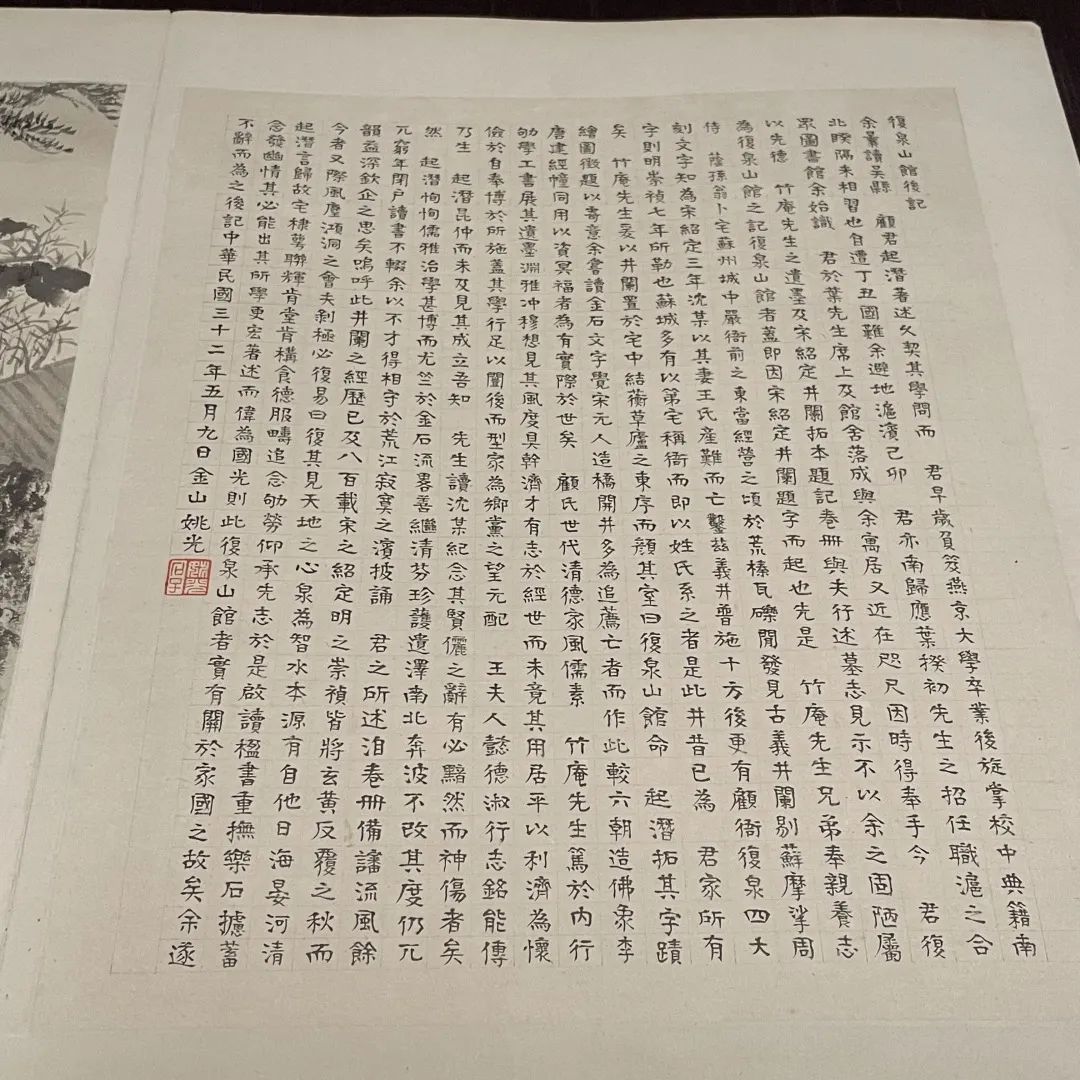 復泉山館後記
余曩讀吳縣 顧君起潛著述夂契其學問而 君早歲負笈燕京大學卒業後旋掌校中典籍南
北睽隔未相習也自遭丁丑國難余避地滬濱己卯 君亦南歸應葉揆初先生之招任職滬之合
眾圖書館余始識 君於葉先生席上及館舍落成與余寓居又近在咫尺因時得奉手今 君復
以先德 竹庵先生之遺墨及宋紹定井闌拓本題記卷冊與夫行述墓志見示不以余之固陋屬
為復泉山館之記復泉山館者蓋即因宋紹定井闌題字而起也先是 竹庵先生兄弟奉親養志
侍 蔭孫翁卜宅蘇州城中嚴衙前之東當經營之頃於荒榛瓦礫間發見古義井闌剔蘚摩挲周
刻文字知為宋紹定三年沈某以其妻王氏產難而亡鑿茲義井普施十方後更有顧衙復泉四大
字則明崇禎七年所勒也蘇城多有以第宅稱衙而即以姓氏系之者是此井昔已為 君家所有
矣 竹庵先生爰以井闌置於宅中結蘅草廬之東序而顏其室曰復泉山館命 起潛拓其字蹟
繪圖徵題以壽意余嘗讀金石文字覺宋元人造橋開井多為追薦亡者而作此較六朝造佛象李
唐建經幢同用以資冥福者為有實際於世矣 顧氏世代清德家風儒素 竹庵先生篤於內行
劬學工書展其遺墨淵雅冲穆想見其風度具幹濟才有志於經世而未竟其用居平以利濟為懷
儉於自奉博於所施蓋其學行足以闓後而型家為鄉黨之望元配 王夫人懿德淑行志銘能傳
乃生 起潛昆仲而未及見其成立吾知 先生讀沈某紀念其賢儷之辭有必黯然而神傷者矣
然 起潛恂恂儒雅治學甚博而尤竺於金石流畧善繼清芬珍護遺澤南北奔波不改其度仍兀
兀窮年閉戶讀書不輟余以不才得相守於荒江寂寞之濱披誦 君之所述洎卷冊備讅流風餘
韻益深欽企之思矣嗚呼此井闌之經歷已及八百載宋之紹定明之崇禎皆將玄黃反覆之秋而
今者又際風塵澒洞之會夫剝極必復易曰復其見天地之心泉為智水本源有自他日海晏河清
起潛言歸故宅棣萼聯輝肯堂肯構食德服疇追念劬勞仰承先志於是啟讀楹書重撫樂石攄蓄
念發幽情其必能出其所學更宏著述而偉為國光則此復泉山館者實有關於家國之故矣余遂
不辭而為之後記中華民國三十二年五月九日金山姚光